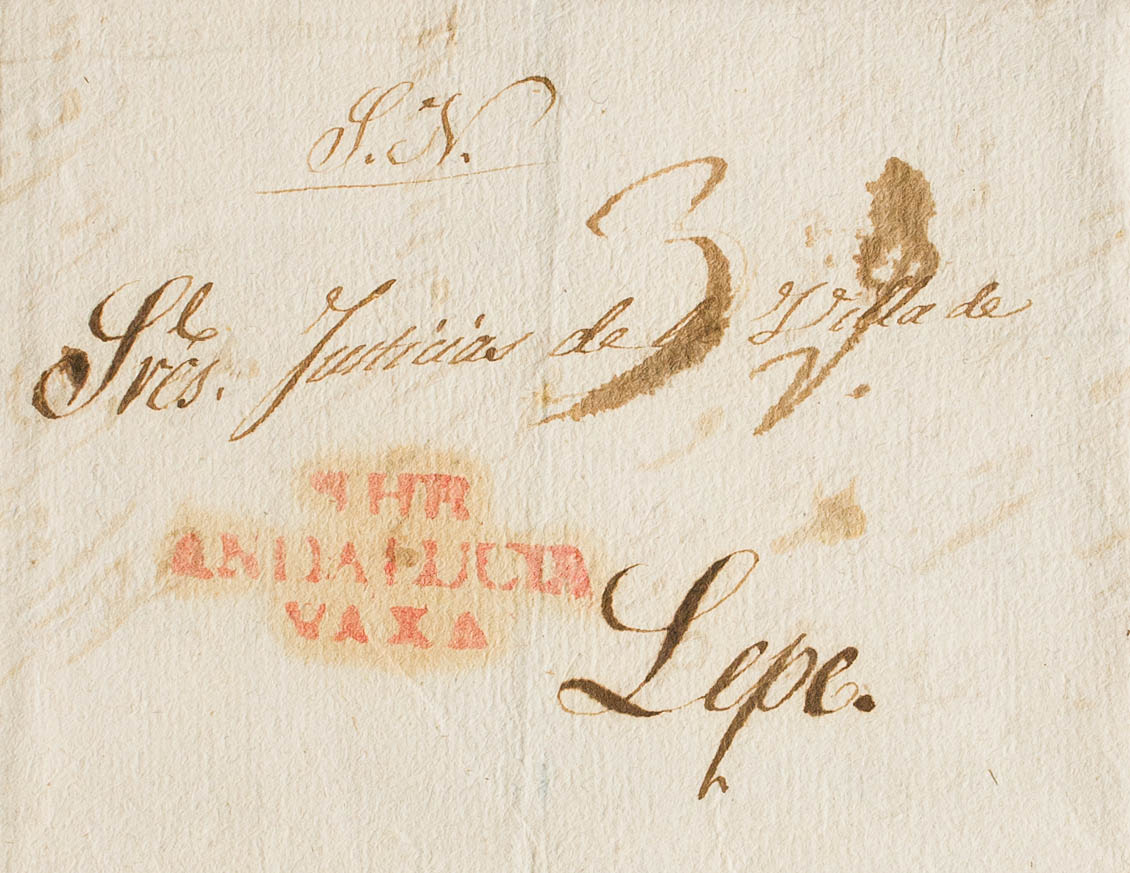 S. N.
3
Sres. Justicias de Villa de
V.
ANDALUCIA
VAXA
Lepe.